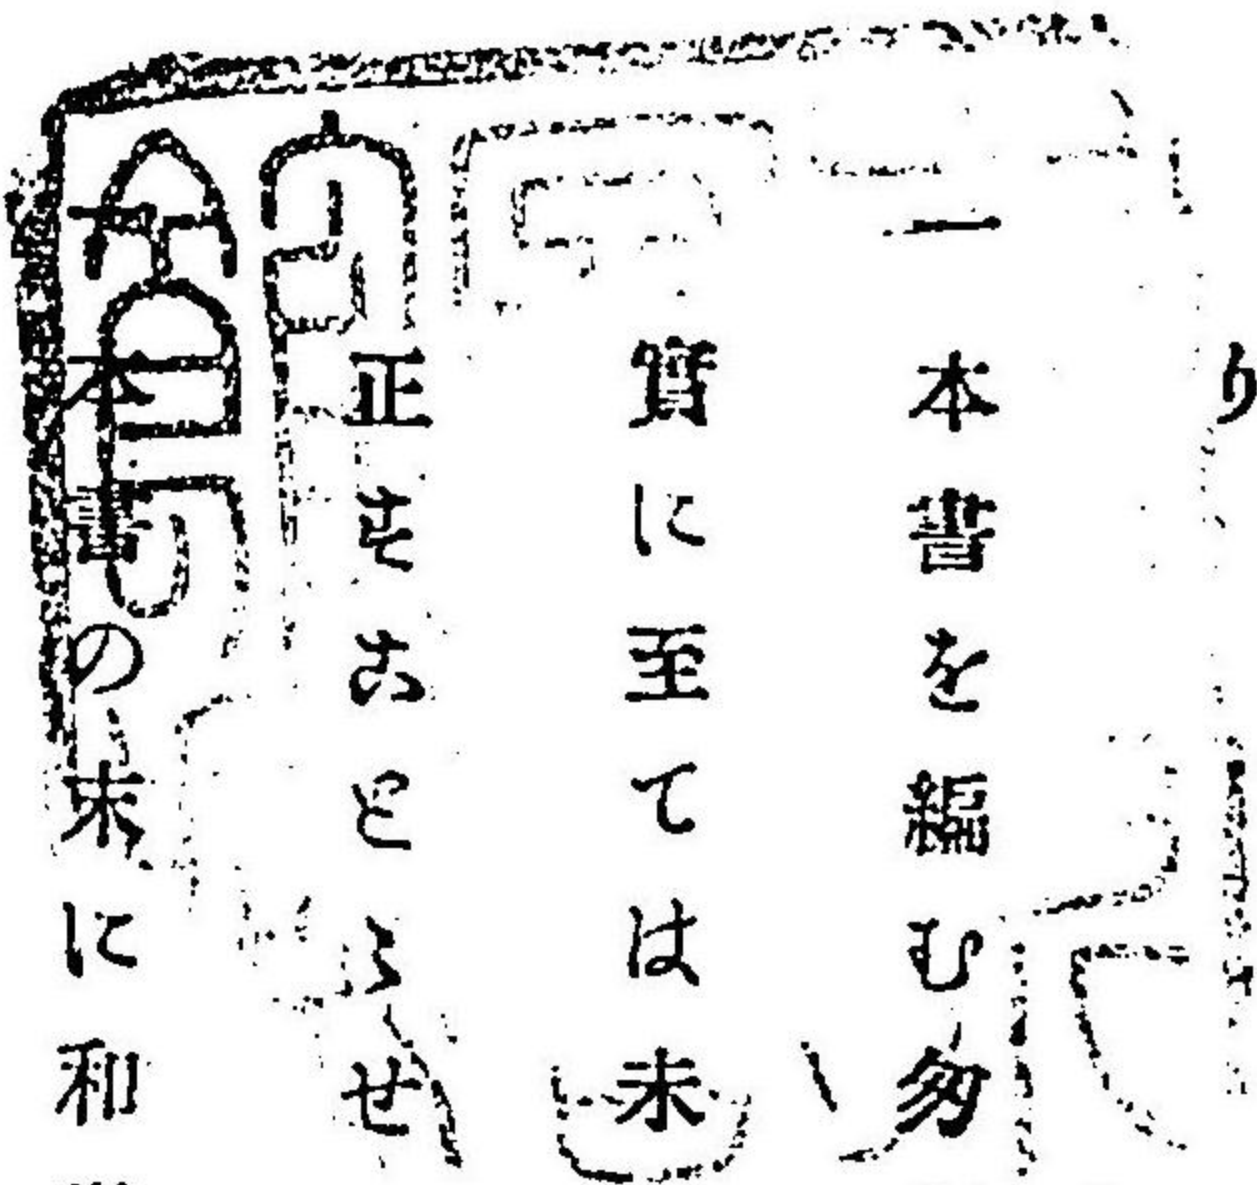 り
一本書を編む匆
實に至ては未
正すことゝせ
一本書の末に和